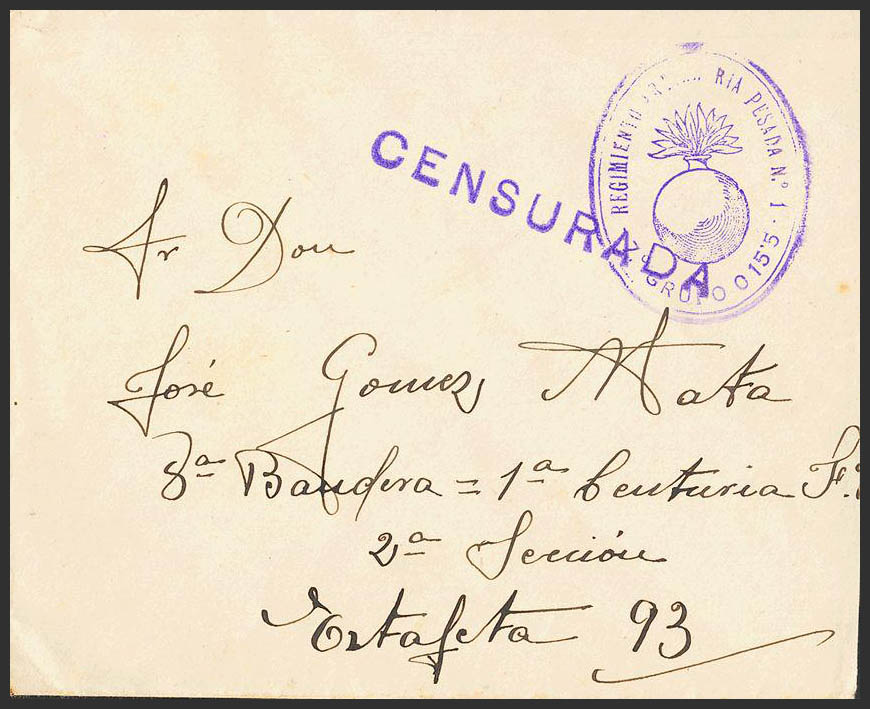 CENSURADA
REGIMIENTO RIA PESADA N.º 1
GRUPO 015'5
Sr Don
José Gomez Mata
8ª Bandera = 1ª Centuria F.
2ª Sección
Estafeta 93